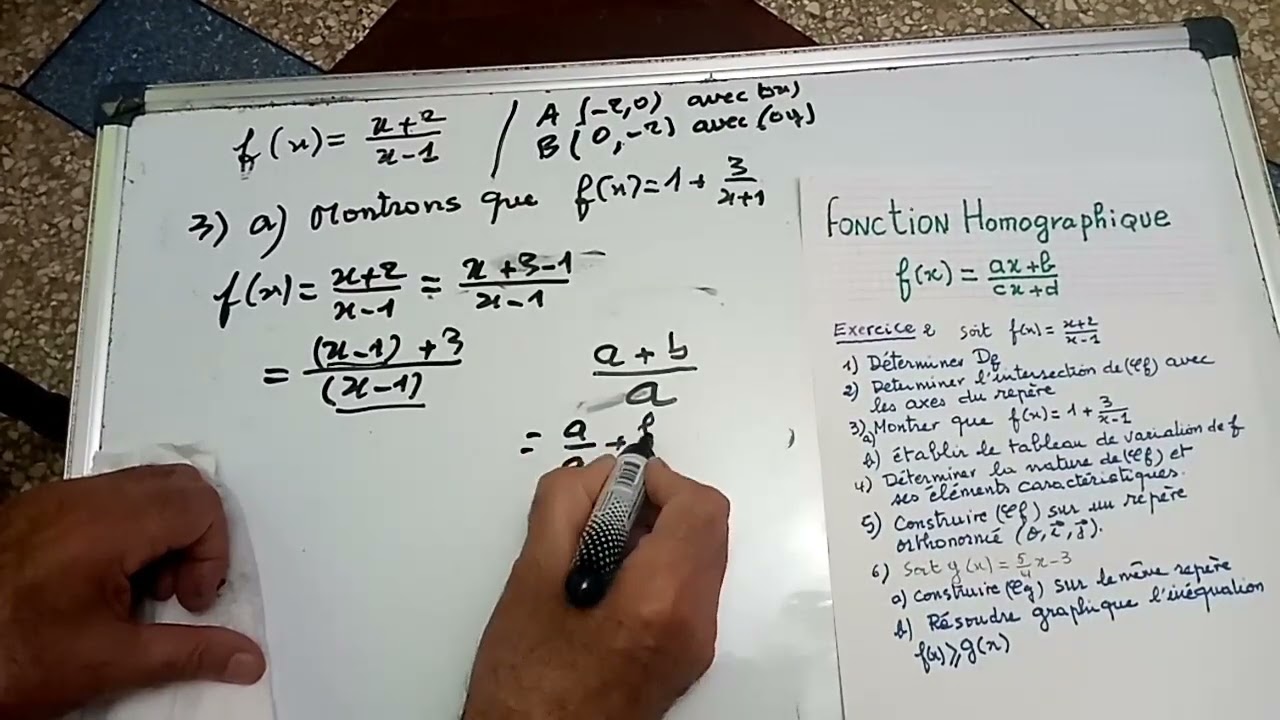 f(x) = x+2 / x-1
A (-2,0) avec (ox)
B (0,-2) avec (oy)
3) a) Montrons que f(x) = 1 + 3 / x+1
f(x) = x+2 / x-1 = x+3-1 / x-1
= (x-1) + 3 / (x-1)
a + b / a
= a / a + b
FONCTION Homographique
f(x) = ax+b / cx+d
Exercice 2 soit f(x) = x+2 / x-1
1) Déterminer Df
2) Determiner l'intersection de (Cf) avec
les axes du repère
3) Montrer que f(x) = 1 + 3 / x-1
a)
b) établir le tableau de variation de f
4) Déterminer la nature de (Cf) et
ses éléments caractéristiques.
5) Construire (Cf) sur un repère
orthonormé (o, i, j).
6) Soit g(x) = 5/4 x - 3
a) Construire (Cg) sur le même repère
b) Résoudre graphique l'inéquation
f(x) ⩾ g(x)